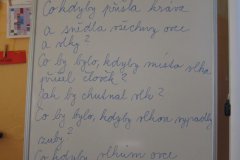 Co kdyby přišla kráva
a snědla všechny ovce
a vlky?
Co by bylo, kdyby místo vlka
přišel člověk?
Jak by chutnal vlk?
Co by bylo, kdyby vlkovi vypadly
zuby?
Co kdyby vlkům ovce